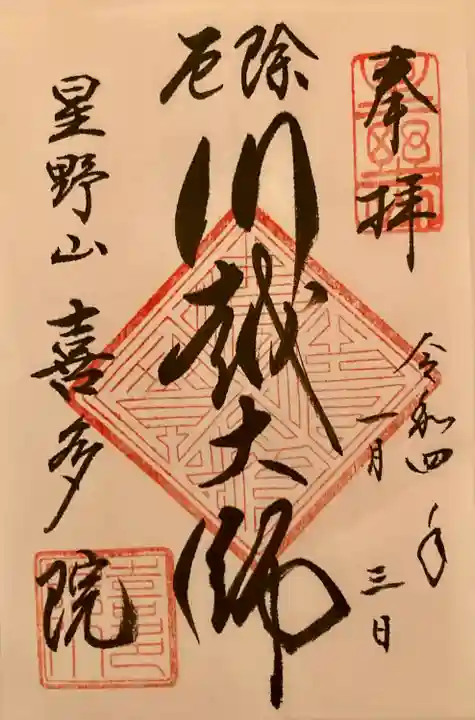 奉拝
令和四年
一月三日
厄除
川越大師
星野山 喜多院